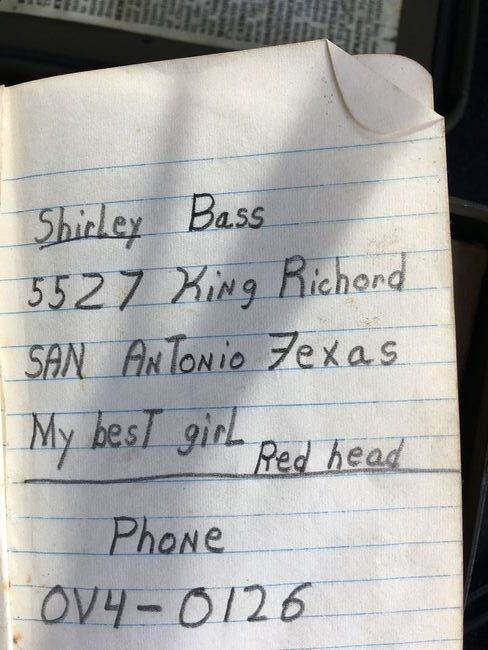 Shirley Bass
5527 King Richard
SAN ANTONIO Texas
My best girl
Red head
Phone
OV4-0126